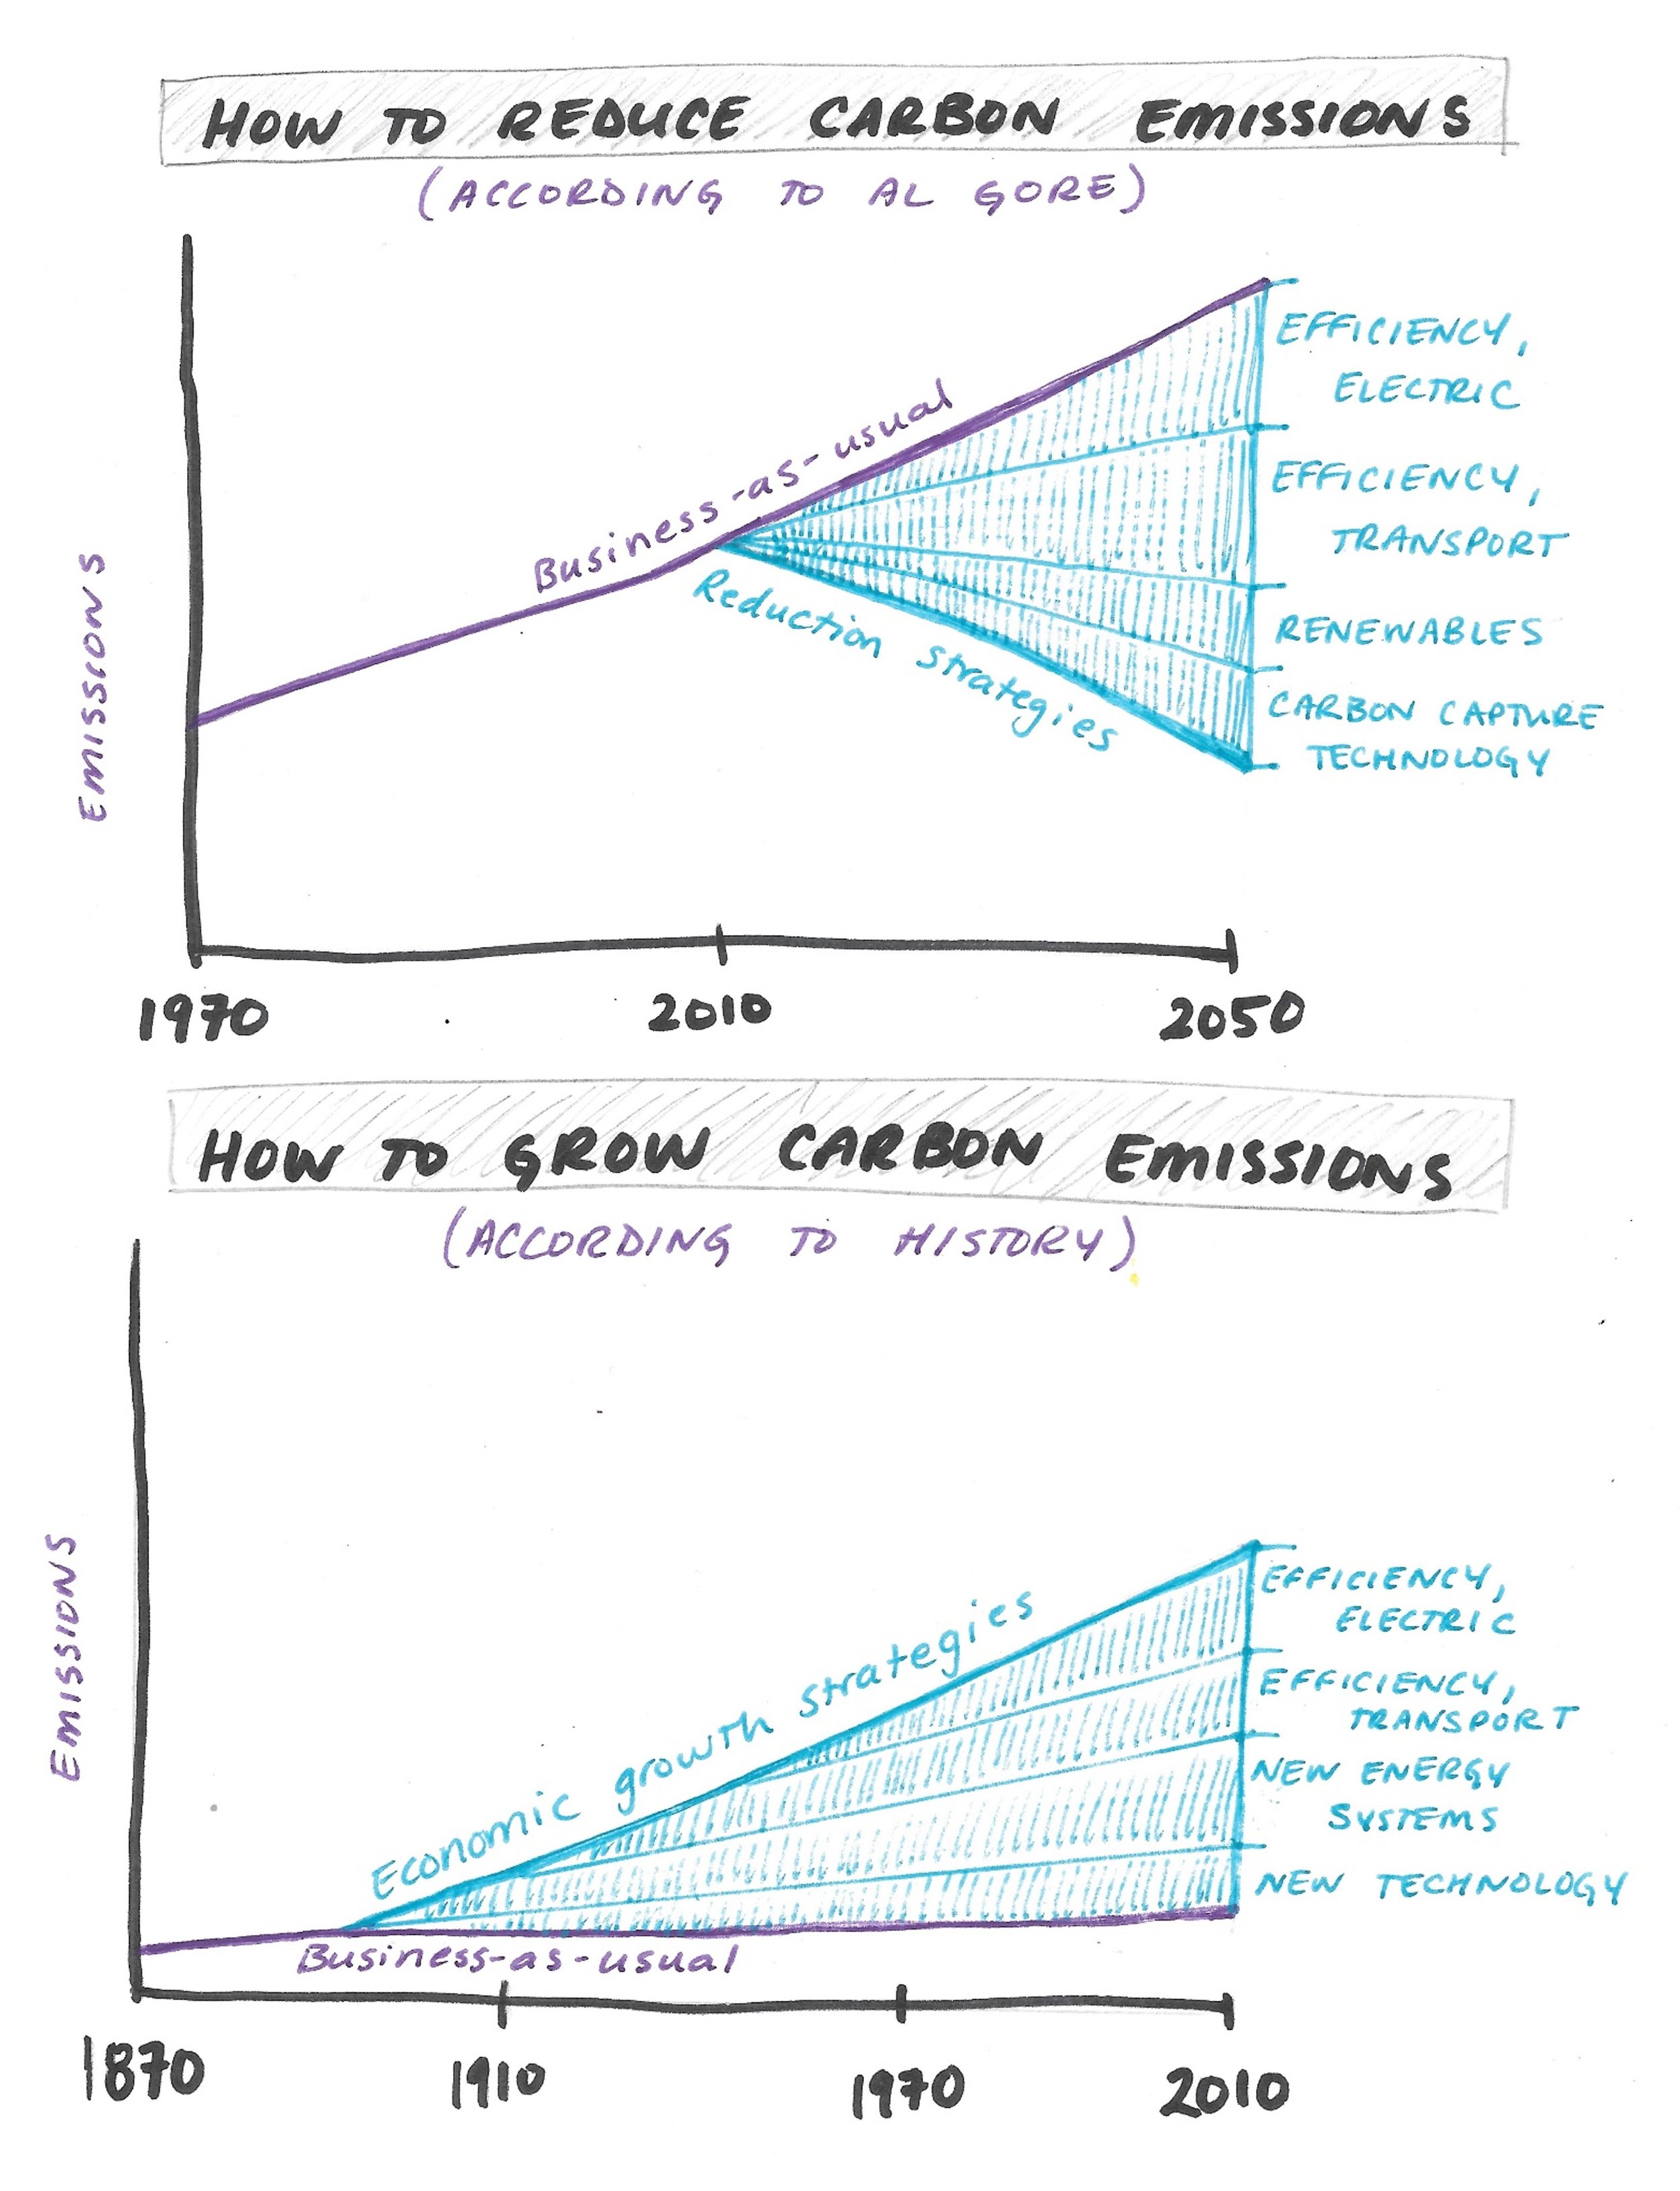 HOW TO REDUCE CARBON EMISSIONS
(ACCORDING TO AL GORE)
EMISSIONS
Business-as-usual
Reduction strategies
EFFICIENCY,
ELECTRIC
EFFICIENCY,
TRANSPORT
RENEWABLES
CARBON CAPTURE
TECHNOLOGY
1970
2010
2050
HOW TO GROW CARBON EMISSIONS
(ACCORDING TO HISTORY)
EMISSIONS
Economic growth strategies
Business-as-usual
EFFICIENCY,
ELECTRIC
EFFICIENCY,
TRANSPORT
NEW ENERGY
SYSTEMS
NEW TECHNOLOGY
1870
1910
1970
2010